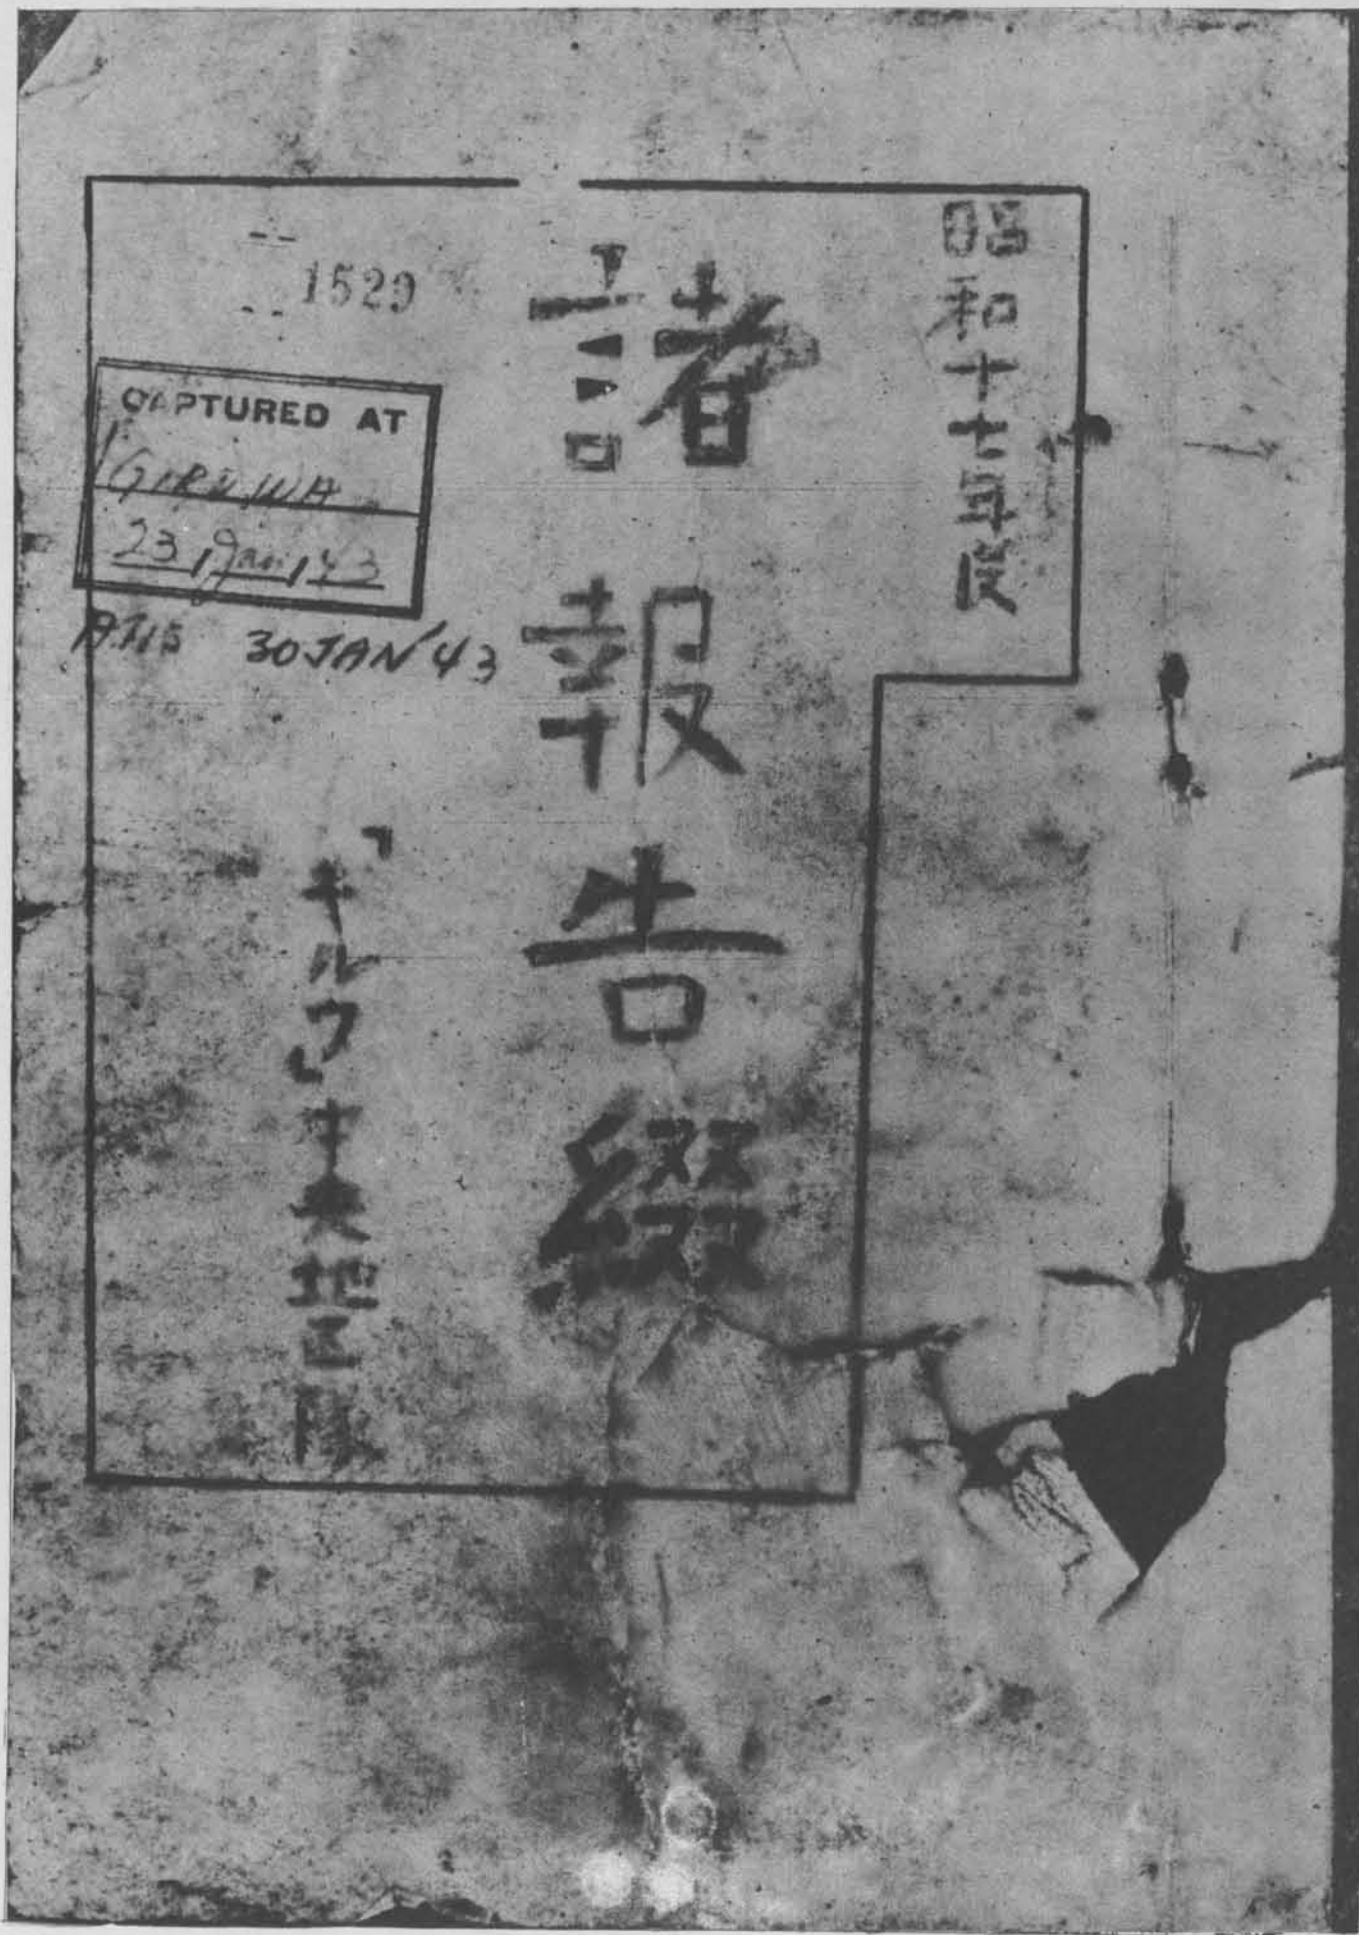 昭和十七年度
諸報告綴
「ギルワ」中央地区隊
1529
CAPTURED AT
GIRUWA
23 Jan 43
ATIS 30 JAN 43